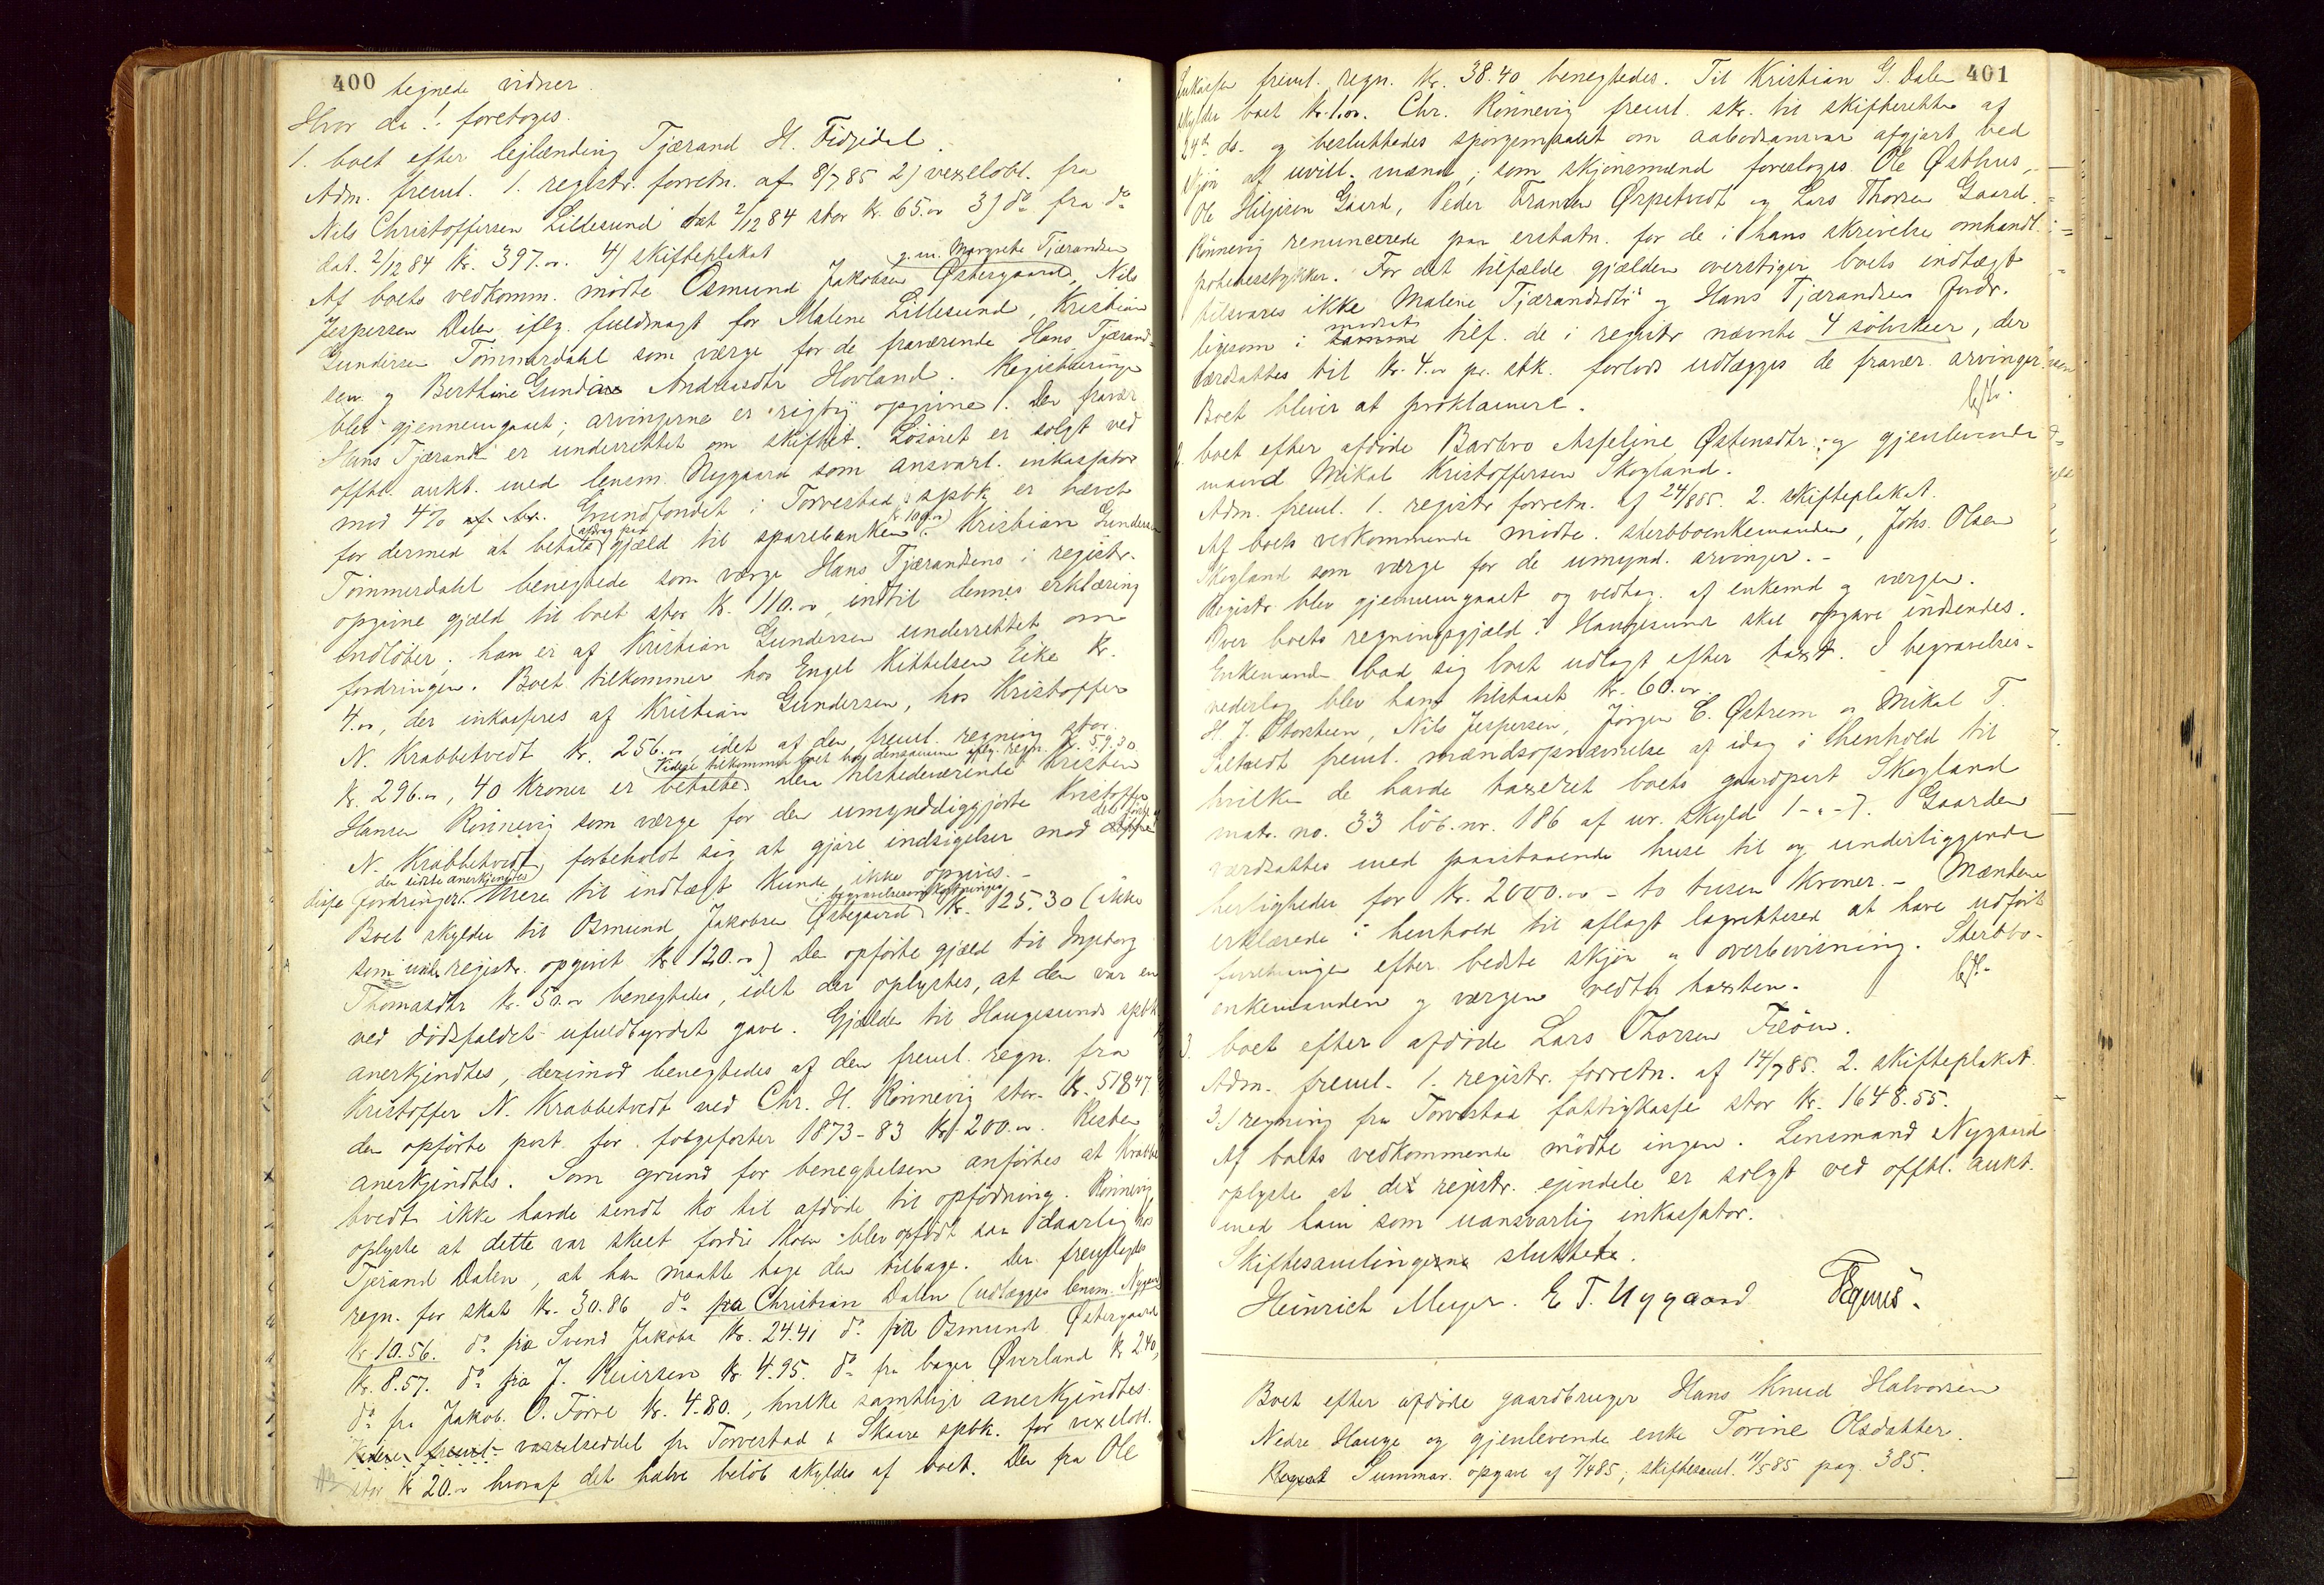 400 tegnede vidner.
Hvor da ! foretoges.
1. boet efter lejlænding Tjærand H.
Adm. freml. 1. registr. forretn. af 8/7 85 2) vexelobl. fra
Nils Christoffersen Lillesund dat 2/12 84 stor kr. 65.00 3) do fra do
dat. 2/12 84 kr. 397.00. 4) skifteplakat
g.m. Margrethe Tjærandsen
Af boets vedkomm. mödte Osmund Jakobsen Östergaard, Nils
Jespersen Dalen iflg. fuldmagt for Malene Lillesund, Kristian
Gundersen Tommerdahl som værge for de fraværende Hans Tjærand-
sen og Berthine Andreasdtr Hovland. Registreringen
blev gjennemgaaet; arvingerne er rigtig opgivne. Den fravær.
Hans Tjærands. er underrettet om skiftet. Lösöret er solgt ved
offtl. aukt. med lensm. Nygaard som ansvarl. inkassator
mod 4% af Grundfondet i Torvestad spbk er hævet
for dermed at betale afdrag paa gjæld til sparebanken kr 100.00. Kristian Gundersen
Tommerdahl benegtede som værge Hans Tjærandsens i registr.
opgivne gjæld til boet stor kr. 110.00, indtil dennes erklæring
indlöber; han er af Kristian Gundersen underrettet om
fordringen. Boet tilkommer hos Engel Kittelsen Eike kr.
4.00, der inkasseres af Kristian Gundersen, hos Kristoffer
N. Krabbetvedt kr. 256.00, idet af den freml. regning stor
Videre tilkommer boet hos densamme iflg. regn. kr. 59.30.
kr. 296.00, 40 kroner er betalte. Den tilstedeværende Kristen
Hansen Rönnevig som værge for den umyndiggjorte Kristoffer
N. Krabbetvedt forbeholdt sig at gjöre indsigelser mod
den sidste anerkjendtes
disse fordringer. Mere til indtægt kunde ikke opgives.-
begravelsesomkostninger
Boet skylder til Osmund Jakobsen Östegaard kr. 125.30 (ikke
som under registr. opgivet kr 120.00) Den opförte gjæld til Ingeborg
Thomasdtr kr. 50.00 benegtedes, idet der oplystes, at den var en
ved dödsfaldet ufuldbyrdet gave. Gjælden til Haugesunds spbk
anerkjendtes, derimod benegtedes af den freml. regn. fra
Kristoffer N. Krabbetvedt ved Chr. H. Rönnevig stor kr. 518.47
den opförte post for folgefoster 1873-83 kr. 200.00. Resten
anerkjendtes. Som grund for benegtelsen anförtes at Krabbe
tvedt ikke havde sendt ko til afdöde til opfödning. Rönnevig
oplyste at dette var skeet fordi koen blev opfödt saa daarlig hos
Tjerand Dalen, at han maatte tage den tilbage. Der fremlagdes
regn. for skat kr. 30.86 do fra Christian Dalen (udlægges lensm. Nygaard
kr 10.56. do fra Svend Jakobs. kr. 24.41 do fra Osmund Östergaard
kr. 8.57. do fra J. Knutsen kr 4.95. do fra bager Överland kr 2.40,
do fra Jakob O. Förre kr. 4.80., hvilke samtlige anerkjendtes.
Videre freml. varselseddel fra Torvestad & Skaare spbk. for vexelobl.
stor kr 20.00 hvoraf det halve belöb skyldes af boet. Den fra Ole
401
freml. regn. kr. 38.40 benegtedes. Til Kristian G. Dalen
skylder boet kr. 1.00. Chr. Rönnevig freml. skr. til skifteretten af
24de ds. og besluttedes spörgsmaalet om aabodsansvar afgjort ved
skjön af uvill. mænd; som skjönsmænd foresloges Ole Østhus,
Ole Hiljesen Gaard, Peder Fransen Ørpetvedt og Lars Thorsen Gaard.
Rönnevig renuncerede paa erstatn. for de i hans skrivelse omhandl.
potetesstykker. For det tilfælde gjælden overstiger boets indtægt
tilsvares ikke Malene Tjærandsdtr's og Hans Tjærandsens fordr.
ligesom i modsat tilf. de i registr nævnte 4 sölvskeer, der
værdsattes til kr. 4.00 pr. stk. forlods udlægges de fravær. arvinger.
Boet bliver at proklamere.
2. boet efter afdöde Barbro Asseline Østensdtr. og gjenlevende
mand Mikal Kristoffersen Skogland.
Adm. freml. 1. registr. forretn. af 24/8 85. 2. skifteplakat.
Af boets vedkommende mödte. sterbboenkemanden, Johs. Olsen
Skogland som værge for de umynd. arvinger.-
Registr. blev gjennemgaaet og vedtag. af enkemd og værgen.
Over boets regningsgjæld i Haugesund skal opgave indsendes.
Enkemanden bad sig boet udlagt efter taxt. I begravelses-
vederlag blev ham tilstaaet kr. 60.00.
H. J. Storsteen, Nils Jespersen, Jörgen C. Østrem og Mikal T.
freml. mændsopnævnelse af idag i henhold til
hvilken de havde taxeret boets gaardpart Skogland
matr. no. 33 löb.nr. 186 af ur. skyld 1-"-7. Gaarden
værdsattes med paastaaende huse til og underliggende
herligheder for kr. 2000.00 - to tusen kroner.- Mændene
erklærede i henhold til aflagt lagretteed at have udfört
forretningen efter bedste skjön og overbevisning. Sterbbo-
enkemanden og værgen vedtog taxten.-
3. boet efter afdöde Lars Thorsen Feöen.
Adm. freml. 1. registr. forretn. af 14/7 85. 2. skifteplakat.
3) regning fra Torvestad fattigkasse stor kr. 1648.55.
Af boets vedkommende mödte ingen. Lensmand Nygaard
oplyste at de registr. ejendele er solgt ved offtl. aukt.
med ham som uansvarlig inkassator.
Skiftesamlingerne sluttede.
Heinrich Meyer. E T. Nygaard
Boet efter afdöde gaardbruger Hans Knud Halvorsen
Nedre Hauge og gjenlevende enke Torine Olsdatter.
Summar. opgave af 7/4 85; skiftesaml. 11/5 85 pag. 385.